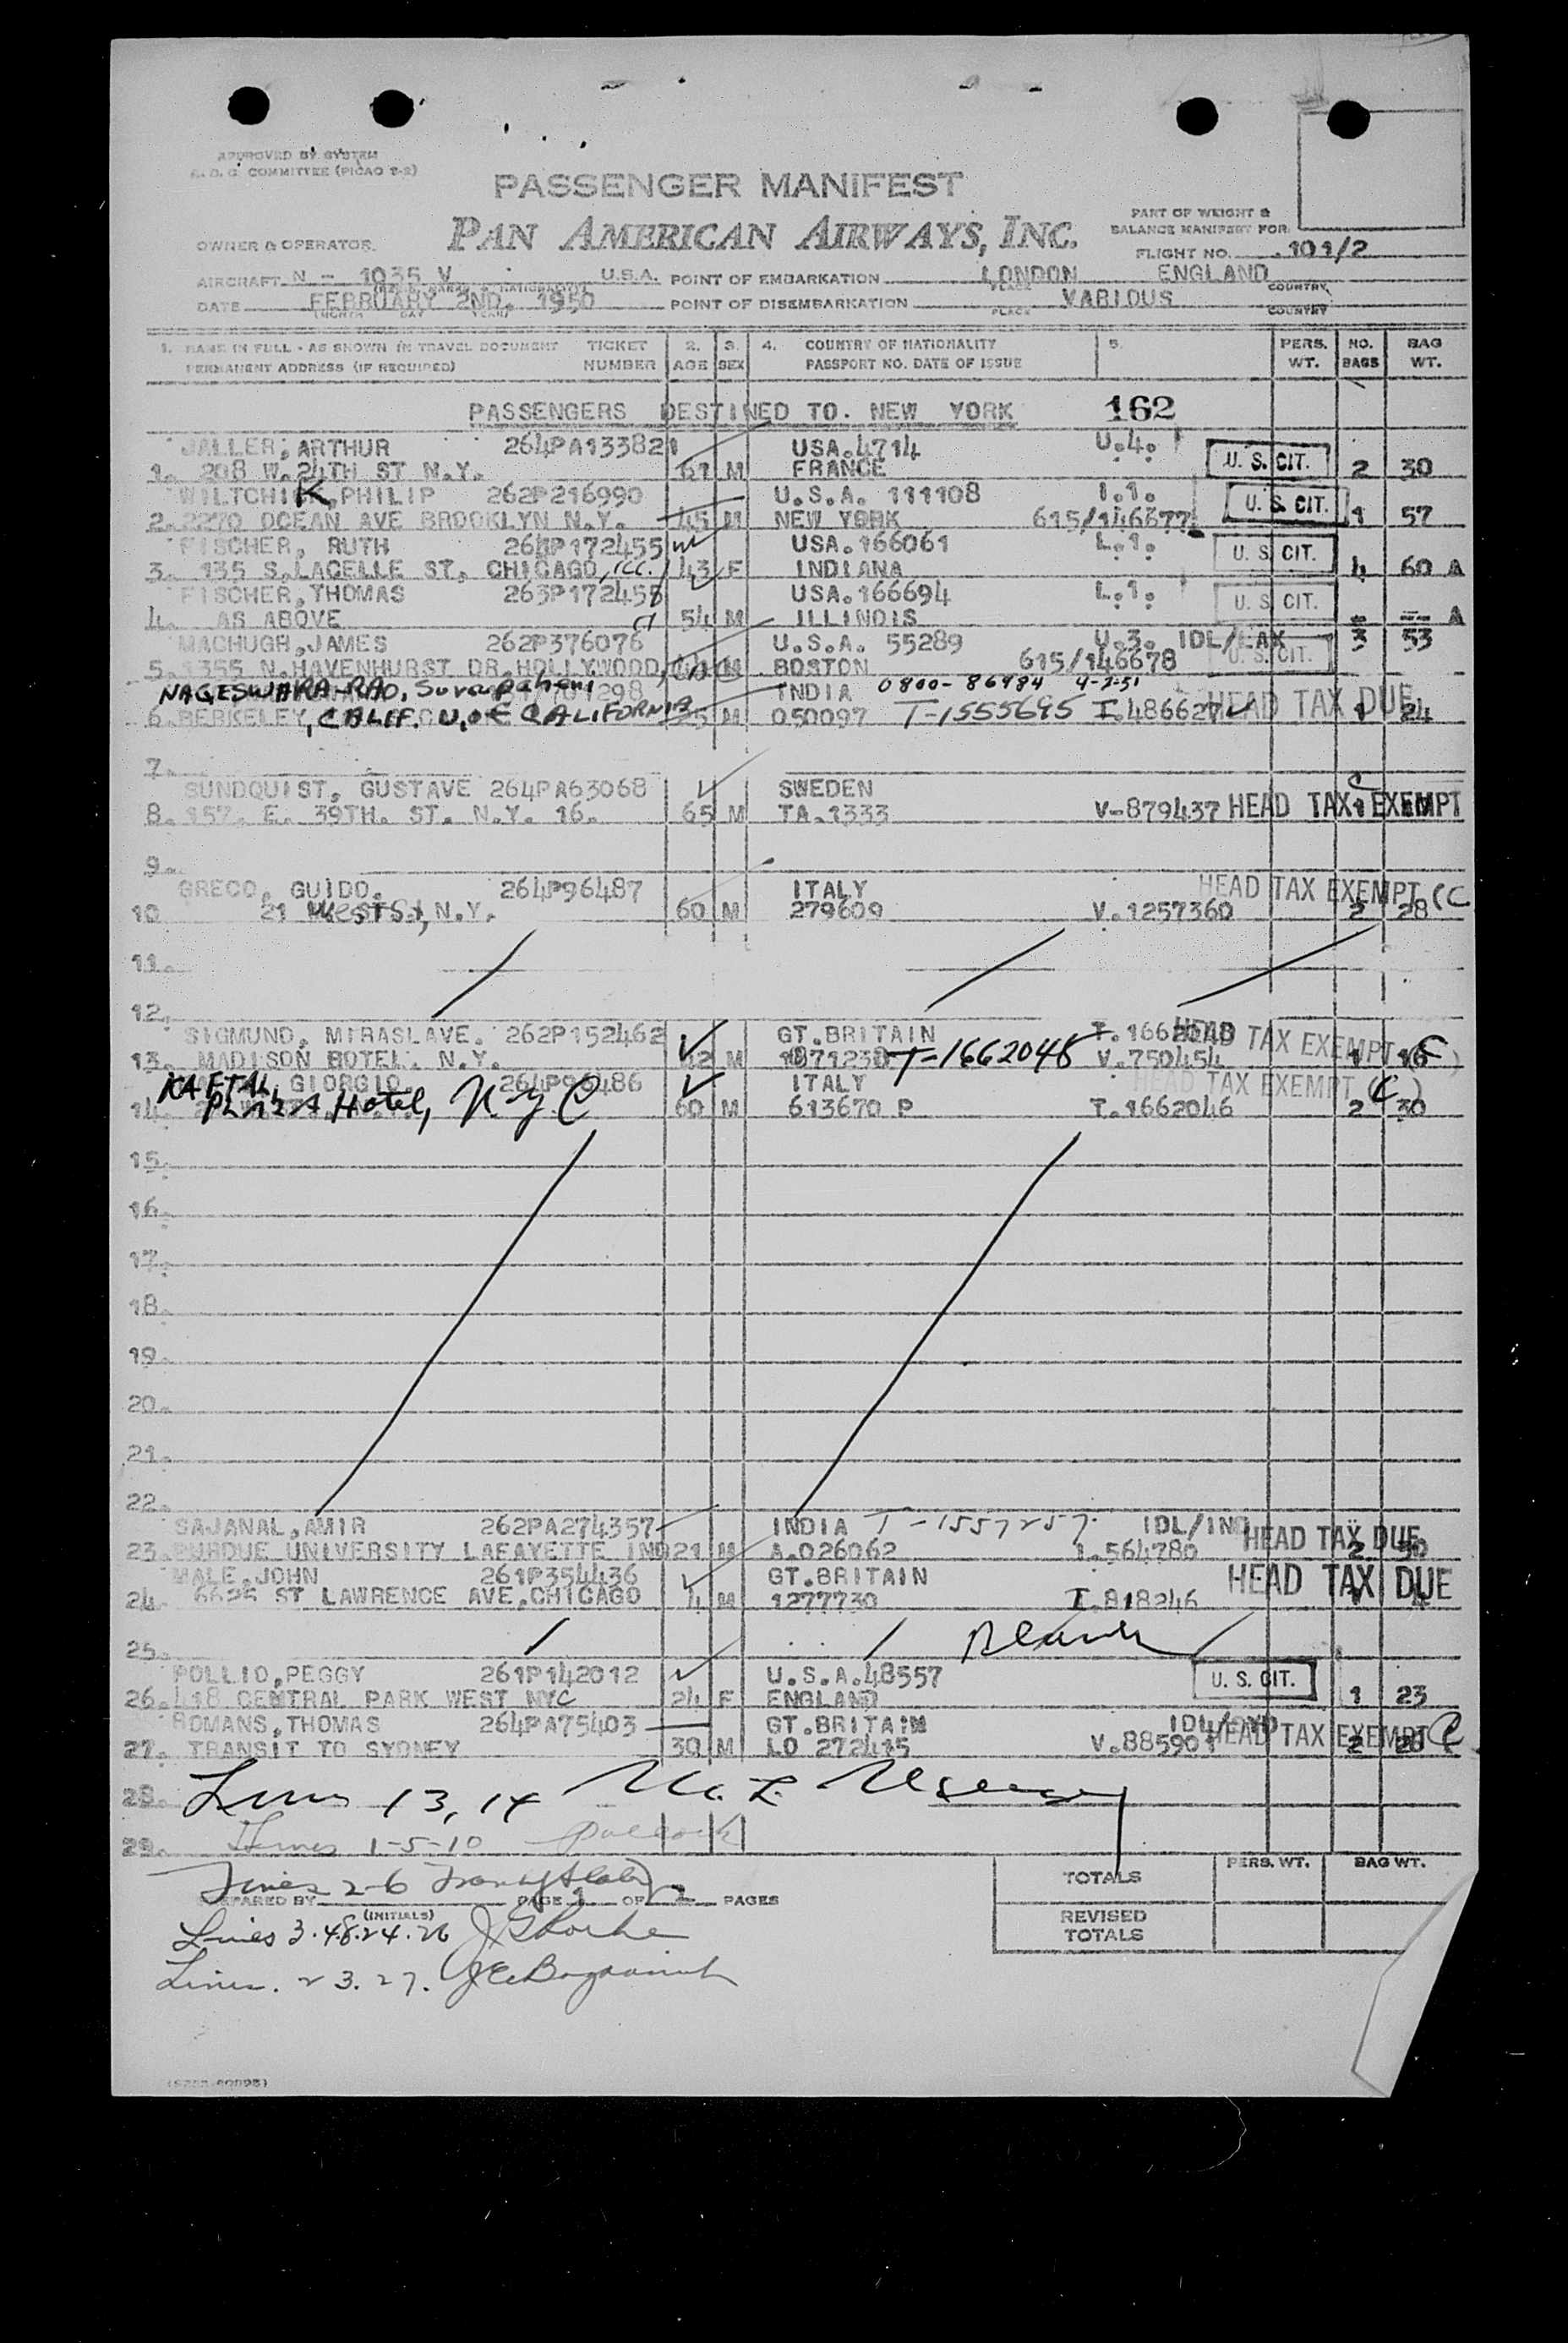 APPROVED BY SYSTEM
COMMITTEE (PICAO 2-2)
PASSENGER MANIFEST
PAN AMERICAN AIRWAYS, INC.
PART OF WEIGHT &
BALANCE MANIFEST FOR
OWNER & OPERATOR
FLIGHT NO. 101/2
AIRCRAFT N - 1035 V U.S.A. POINT OF EMBARKATION LONDON ENGLAND
PLACE COUNTRY
DATE FEBRUARY 2ND. 1950 POINT OF DISEMBARKATION VARIOUS
(MONTH DAY YEAR) PLACE COUNTRY
1. NAME IN FULL - AS SHOWN IN TRAVEL DOCUMENT TICKET 2. 3. 4. COUNTRY OF NATIONALITY 5. PERS. NO. BAG
PERMANENT ADDRESS (IF REQUIRED) NUMBER AGE SEX PASSPORT NO. DATE OF ISSUE WT. BAGS WT.
PASSENGERS DESTINED TO. NEW YORK 162
JALLER, ARTHUR 264PA133821 USA.4714 U.4.
1. 208 W.24TH ST N.Y. 61 M FRANCE U. S. CIT. 2 30
WILTCHIK, PHILIP 262P216990 U.S.A. 111108 I.1.
2. 2270 OCEAN AVE BROOKLYN N.Y. 45 M NEW YORK 615/146677 U. S. CIT. 1 57
FISCHER, RUTH 264P172455 USA.166061 L.1.
3. 135 S.LACELLE ST, CHICAGO, ILL. 43 F INDIANA U. S. CIT. 4 60 A
FISCHER, THOMAS 263P172455 USA.166694 L.1.
4. AS ABOVE 54 M ILLINOIS U. S. CIT. - -- A
MACHUGH, JAMES 262P376076 U.S.A. 55289 U.3. IDL/LAX 3 53
5. 1355 N.HAVENHURST DR.HOLLYWOOD, M BOSTON 615/146678 U. S. CIT.
NAGESWARA-RAO, Surapaheni 298 INDIA 0800-86984 4-2-51
6. BERKELEY, CALIF. U. OF CALIFORNIA 25 M 050097 T-1555695 I.486627 HEAD TAX DUE 1 24
7.
SUNDQUIST, GUSTAVE 264PA63068 SWEDEN
8. 157. E. 39TH. ST. N.Y. 16. 65 M TA.1333 V-879437 HEAD TAX EXEMPT 1
9.
GRECO, GUIDO. 264P96487 ITALY HEAD TAX EXEMPT (C
10 21 West St, N.Y. 60 M 279609 V.1257360 2 28
11.
12.
SIGMUND, MIRASLAVE. 262P152462 GT.BRITAIN T.1662048 HEAD TAX EXEMPT
13. MADISON HOTEL. N.Y. 42 M T-1662048 V.750454 1 16
KAFTAL, GIORGIO. 264P96486 ITALY HEAD TAX EXEMPT (C)
14. Plaza Hotel, N.Y.C 60 M 613670 P T.1662046 2 30
15.
16.
17.
18.
19.
20.
21.
22.
SAJANAL, AMIR 262PA274357 INDIA T-1557257. IDL/IND
23. PURDUE UNIVERSITY LAFAYETTE IND 21 M A.026062 I.564780 HEAD TAX DUE 2
MALE, JOHN 261P354436 GT.BRITAIN
24. 6625 ST LAWRENCE AVE.CHICAGO 4 M 1277730 I.818246 HEAD TAX DUE
25.
POLLIO, PEGGY 261P142012 U.S.A.48557
26. 418 CENTRAL PARK WEST NYC 24 F ENGLAND U. S. CIT. 1 23
ROMANS, THOMAS 264PA75403 GT.BRITAIN IDL/SYD
27. TRANSIT TO SYDNEY 30 M LO 272415 V.885901 HEAD TAX EXEMPT C 2 28
28. Lines 13, 14
29. Lines 1-5-10 Pollock
Lines 2-6
PREPARED BY (INITIALS) PAGE 1 OF 2 PAGES
TOTALS PERS. WT. BAG WT.
Lines 3.4.8.24.26
REVISED
TOTALS
Lines. 23.27.